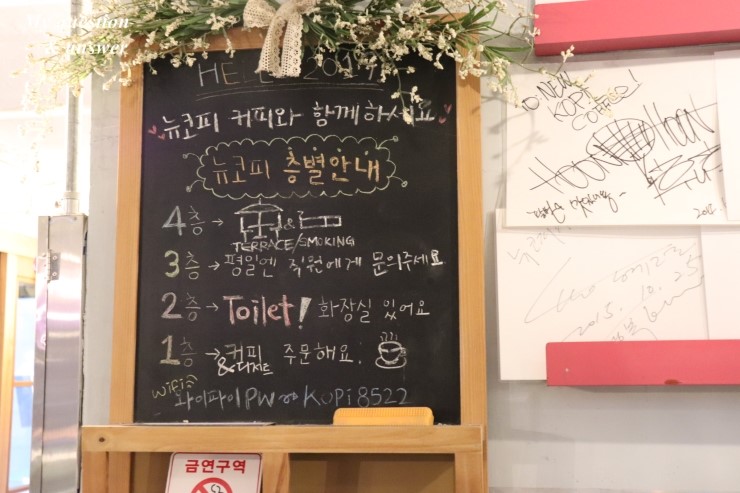 My question
& answer
HE 2019
뉴코피 커피와 함께하세요
뉴코피 층별안내
4층 → &
TERRACE/SMOKING
3층 → 평일엔 직원에게 문의주세요
2층 → Toilet! 화장실 있어요
1층 → 커피 주문해요.
&디저트
WiFi
와이파이PW KOPi8522
금연구역
TO NEW
KOPI
COFFEE!
2015.10.25